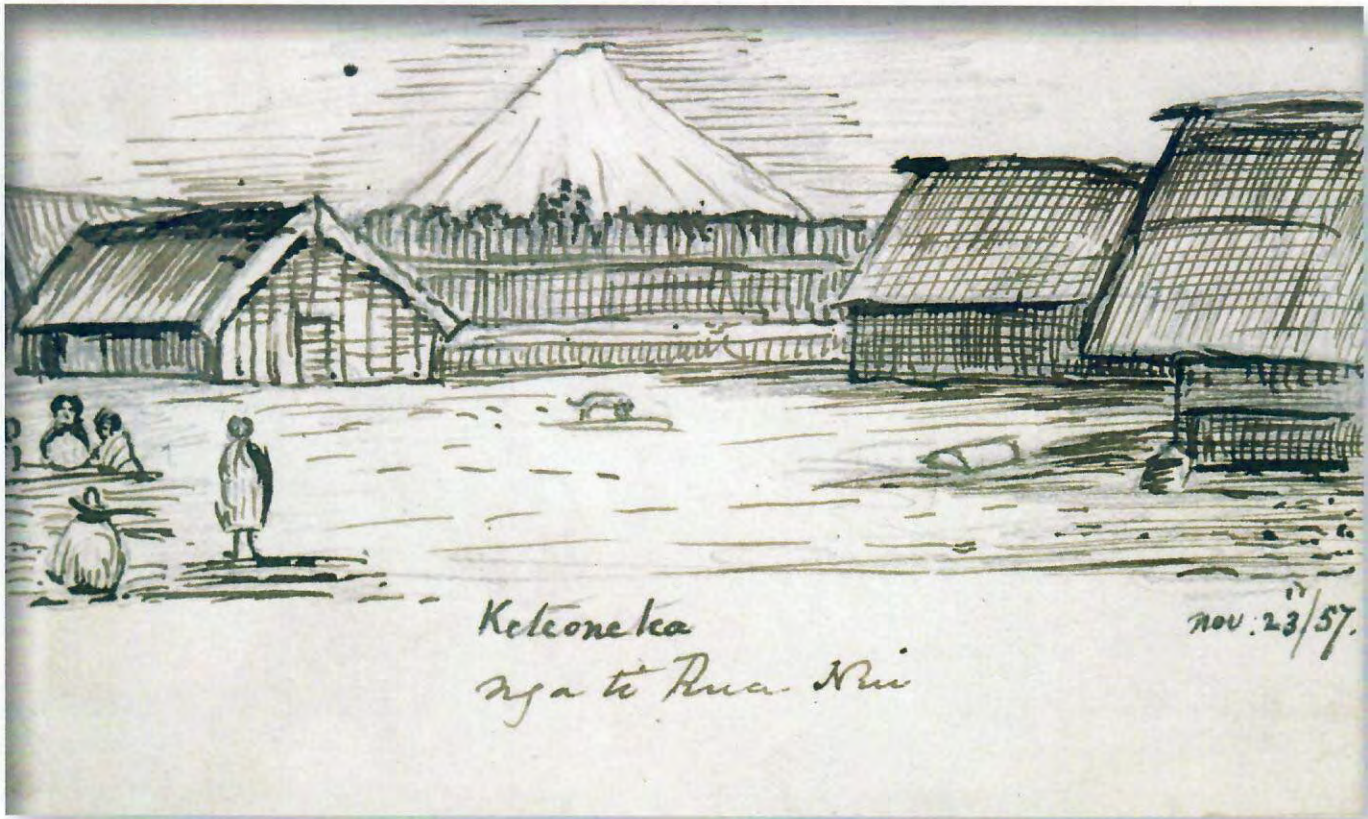 Keteonetea
nga ti Rua Nui
nov: 23"/57.